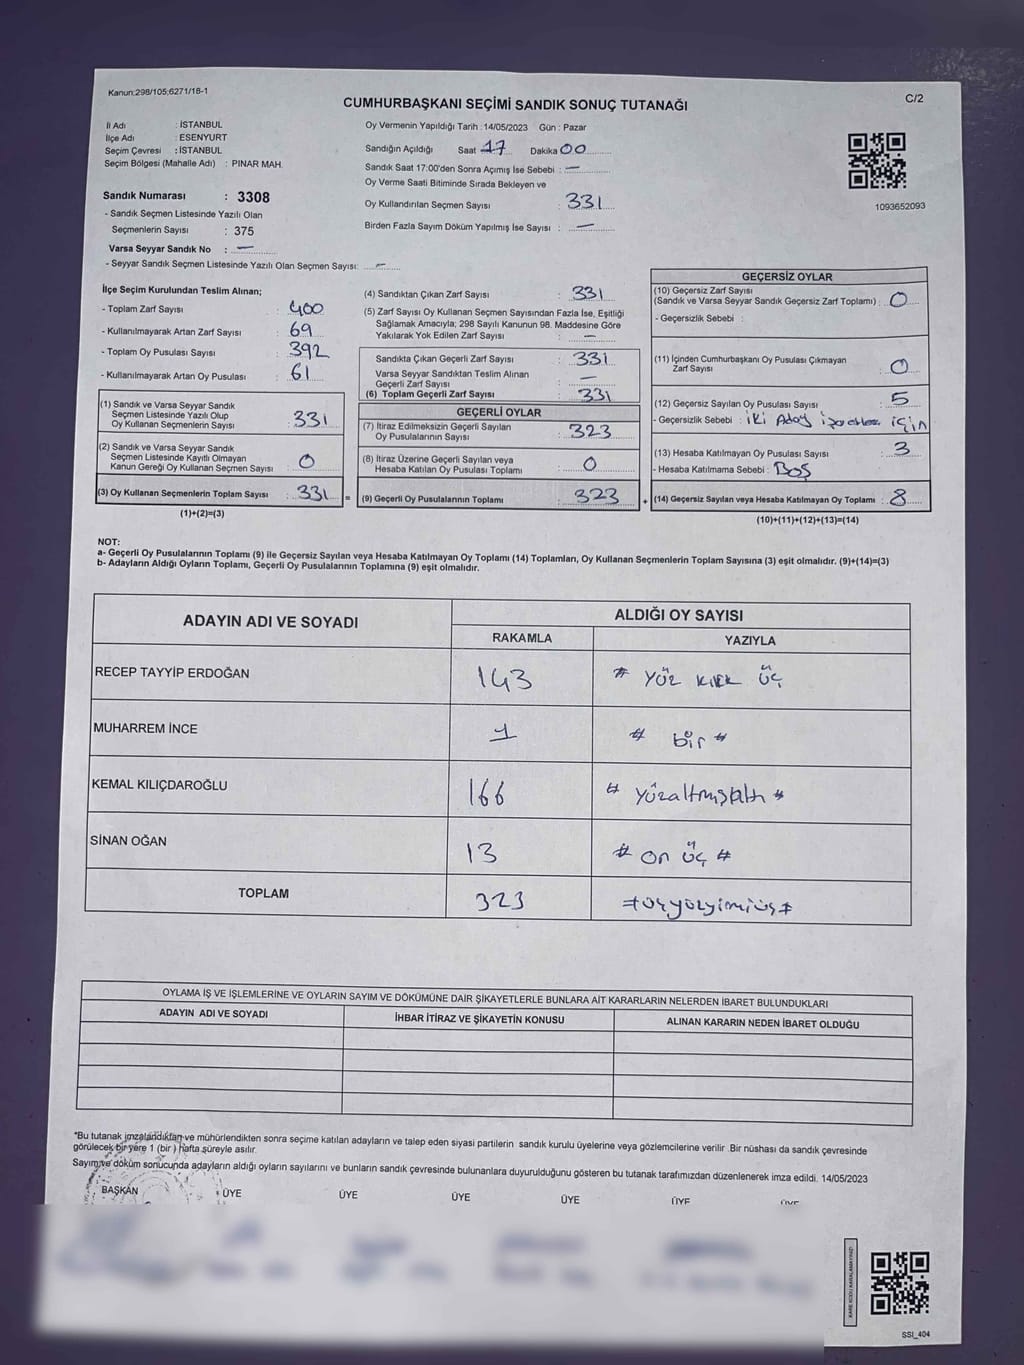 Kanun:298/105;6271/18-1
CUMHURBAŞKANI SEÇİMİ SANDIK SONUÇ TUTANAĞI
C/2
İl Adı : İSTANBUL
İlçe Adı : ESENYURT
Seçim Çevresi : İSTANBUL
Seçim Bölgesi (Mahalle Adı) : PINAR MAH.
Sandık Numarası : 3308
- Sandık Seçmen Listesinde Yazılı Olan
Seçmenlerin Sayısı : 375
Varsa Seyyar Sandık No : —
- Seyyar Sandık Seçmen Listesinde Yazılı Olan Seçmen Sayısı: —
Oy Vermenin Yapıldığı Tarih : 14/05/2023 Gün : Pazar
Sandığın Açıldığı Saat 17 Dakika 00
Sandık Saat 17:00'den Sonra Açımış İse Sebebi : —
Oy Verme Saati Bitiminde Sırada Bekleyen ve
Oy Kullandırılan Seçmen Sayısı : 331
Birden Fazla Sayım Döküm Yapılmış İse Sayısı : —
1093652093
İlçe Seçim Kurulundan Teslim Alınan;
- Toplam Zarf Sayısı : 400
- Kullanılmayarak Artan Zarf Sayısı : 69
- Toplam Oy Pusulası Sayısı : 392
- Kullanılmayarak Artan Oy Pusulası : 61
(1) Sandık ve Varsa Seyyar Sandık
Seçmen Listesinde Yazılı Olup
Oy Kullanan Seçmenlerin Sayısı : 331
(2) Sandık ve Varsa Seyyar Sandık
Seçmen Listesinde Kayıtlı Olmayan
Kanun Gereği Oy Kullanan Seçmen Sayısı : 0
(3) Oy Kullanan Seçmenlerin Toplam Sayısı : 331 =
(1)+(2)=(3)
(4) Sandıktan Çıkan Zarf Sayısı : 331
(5) Zarf Sayısı Oy Kullanan Seçmen Sayısından Fazla İse, Eşitliği
Sağlamak Amacıyla; 298 Sayılı Kanunun 98. Maddesine Göre
Yakılarak Yok Edilen Zarf Sayısı : —
Sandıkta Çıkan Geçerli Zarf Sayısı : 331
Varsa Seyyar Sandıktan Teslim Alınan
Geçerli Zarf Sayısı : —
(6) Toplam Geçerli Zarf Sayısı : 331
GEÇERLİ OYLAR
(7) İtiraz Edilmeksizin Geçerli Sayılan
Oy Pusulalarının Sayısı : 323
(8) İtiraz Üzerine Geçerli Sayılan veya
Hesaba Katılan Oy Pusulası Toplamı : 0
(9) Geçerli Oy Pusulalarının Toplamı : 323 +
GEÇERSİZ OYLAR
(10) Geçersiz Zarf Sayısı
(Sandık ve Varsa Seyyar Sandık Geçersiz Zarf Toplamı) : 0
- Geçersizlik Sebebi :
(11) İçinden Cumhurbaşkanı Oy Pusulası Çıkmayan
Zarf Sayısı : 0
(12) Geçersiz Sayılan Oy Pusulası Sayısı : 5
- Geçersizlik Sebebi : iki Aday için
(13) Hesaba Katılmayan Oy Pusulası Sayısı : 3
- Hesaba Katılmama Sebebi : BOŞ
(14) Geçersiz Sayılan veya Hesaba Katılmayan Oy Toplamı : 8
(10)+(11)+(12)+(13)=(14)
NOT:
a- Geçerli Oy Pusulalarının Toplamı (9) ile Geçersiz Sayılan veya Hesaba Katılmayan Oy Toplamı (14) Toplamları, Oy Kullanan Seçmenlerin Toplam Sayısına (3) eşit olmalıdır. (9)+(14)=(3)
b- Adayların Aldığı Oyların Toplamı, Geçerli Oy Pusulalarının Toplamına (9) eşit olmalıdır.
ADAYIN ADI VE SOYADI
ALDIĞI OY SAYISI
RAKAMLA YAZIYLA
RECEP TAYYİP ERDOĞAN 143 # YÜZ KIRK ÜÇ
MUHARREM İNCE 1 # bir #
KEMAL KILIÇDAROĞLU 166 # yüzaltmışaltı #
SİNAN OĞAN 13 # on üç #
TOPLAM 323 #üçyüzyirmiüç#
OYLAMA İŞ VE İŞLEMLERİNE VE OYLARIN SAYIM VE DÖKÜMÜNE DAİR ŞİKAYETLERLE BUNLARA AİT KARARLARIN NELERDEN İBARET BULUNDUKLARI
ADAYIN ADI VE SOYADI İHBAR İTİRAZ VE ŞİKAYETİN KONUSU ALINAN KARARIN NEDEN İBARET OLDUĞU
*Bu tutanak imzalandıktan ve mühürlendikten sonra seçime katılan adayların ve talep eden siyasi partilerin sandık kurulu üyelerine veya gözlemcilerine verilir. Bir nüshası da sandık çevresinde
görülecek bir yere 1 (bir ) hafta süreyle asılır.
Sayım ve döküm sonucunda adayların aldığı oyların sayılarını ve bunların sandık çevresinde bulunanlara duyurulduğunu gösteren bu tutanak tarafımızdan düzenlenerek imza edildi. 14/05/2023
BAŞKAN ÜYE ÜYE ÜYE ÜYE ÜYE ÜYE
SSI_404